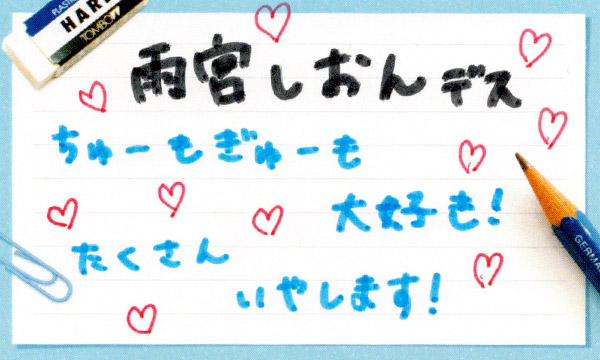 PLASTIC
HARD
TOMBOW
雨宮しおんデス
ちゅーもぎゅーも
大好き!
たくさん
いやします!
GERMA